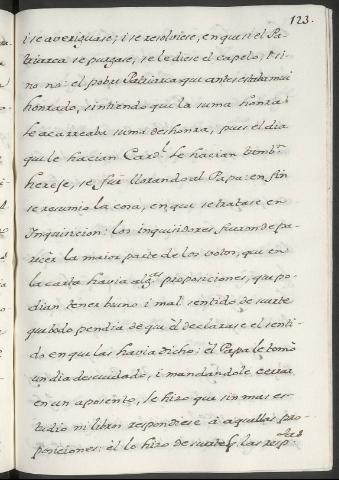 123.
i se averiguase; i se resolviese, en que si el Pa-
triarca se purgase, se le diese el capelo, i si
no no: el pobre Patriarca que antes estaba mui
honrado, sintiendo que la suma honra
le acarreaba suma deshonra, pues el dia
que le hacian Card.l le hacian tambn
hereje, se fue llorando al Papa: en fin
se resumio la cosa, en que se tratase en
Inquisicion: los inquisidores fueron de pa-
recer la maior parte de los votos, que en
la carta havia algs proposiciones, que po-
dian tener bueno i mal sentido de suerte
que todo pendia de que el declarase el senti-
do en que las havia dicho: el Papa le tomò
un dia descuidado, i mandandole cerrar
en un aposento, le hizo que sin mas es-
tudio ni libros respondiese á aquellas pro-
posiciones: él lo hizo de suerte q las resp-